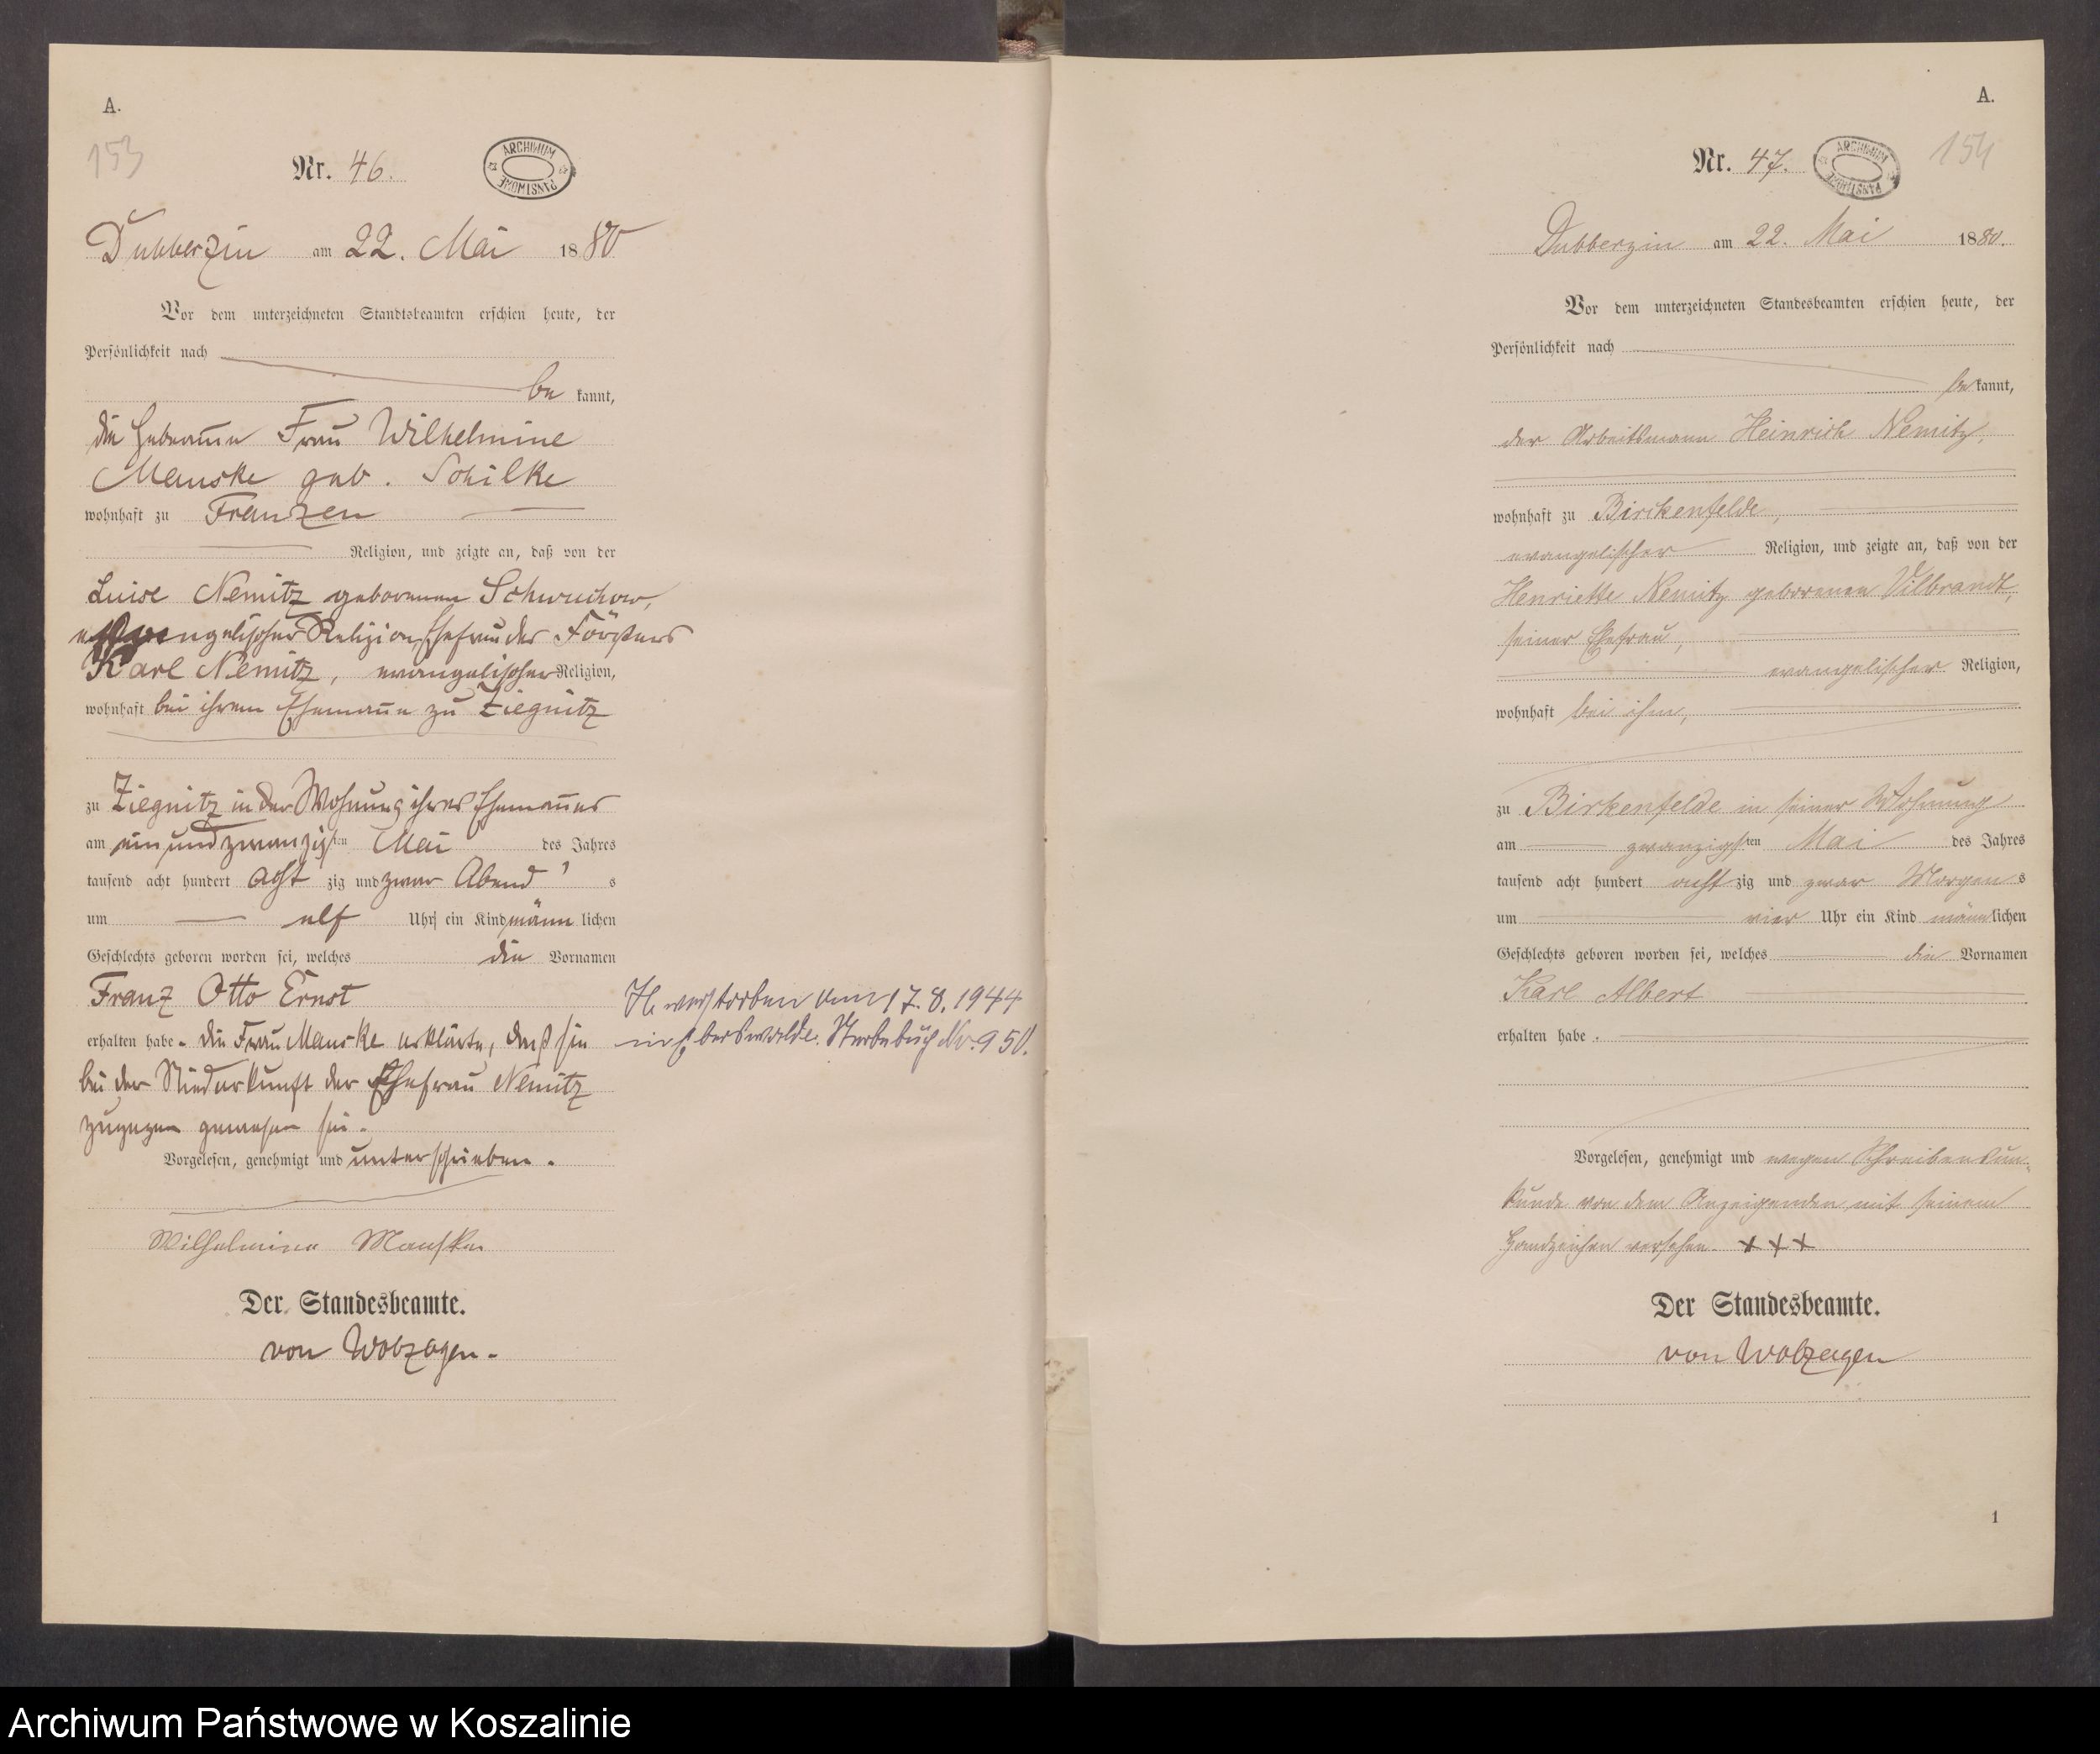 A.
153
Nr. 46.
ARCHIWUM PAŃSTWOWE
Dubberzin am 22. Mai 1880
Vor dem unterzeichneten Standtsbeamten erschien heute, der
Persönlichkeit nach
be kannt,
die Hebeamme Frau Wilhelmine
Manske geb. Schilke
wohnhaft zu Franzen
Religion, und zeigte an, daß von der
Luise Nemitz geborenen Schwuchow,
evangelischer Religion, Ehefrau des Försters
Karl Nemitz, evangelischer Religion,
wohnhaft bei ihrem Ehemann zu Ziegnitz
zu Ziegnitz in der Wohnung ihres Ehemannes
am ein und zwanzigsten Mai des Jahres
tausend acht hundert acht zig und zwar Abend s
um elf Uhr ein Kind männ lichen
Geschlechts geboren worden sei, welches die Vornamen
Franz Otto Ernst
erhalten habe. Die Frau Manske erklärte, daß sie
bei der Niederkunft der Ehefrau Nemitz
zugegen gewesen sei.
Vorgelesen, genehmigt und unterschrieben.
Wilhelmine Manske
Der Standesbeamte.
von Wolzogen.
verstorben am 17.8.1944
in Eberswalde. Sterbebuch Nr. 950.
A.
154
Nr. 47.
ARCHIWUM PAŃSTWOWE
Dubberzin am 22. Mai 1880.
Vor dem unterzeichneten Standesbeamten erschien heute, der
Persönlichkeit nach
be kannt,
der Arbeitsmann Heinrich Nemitz,
wohnhaft zu Birckenfelde,
evangelischer Religion, und zeigte an, daß von der
Henriette Nemitz geborenen Vilbrandt,
seiner Ehefrau,
evangelischer Religion,
wohnhaft bei ihm,
zu Birkenfelde in seiner Wohnung
am zwanzigsten Mai des Jahres
tausend acht hundert acht zig und zwar Morgen s
um vier Uhr ein Kind männ lichen
Geschlechts geboren worden sei, welches die Vornamen
Karl Albert
erhalten habe.
Vorgelesen, genehmigt und wegen Schreibensun-
kunde von dem Anzeigenden mit seinem
Handzeichen versehen. + + +
Der Standesbeamte.
von Wolzogen
1
Archiwum Państwowe w Koszalinie